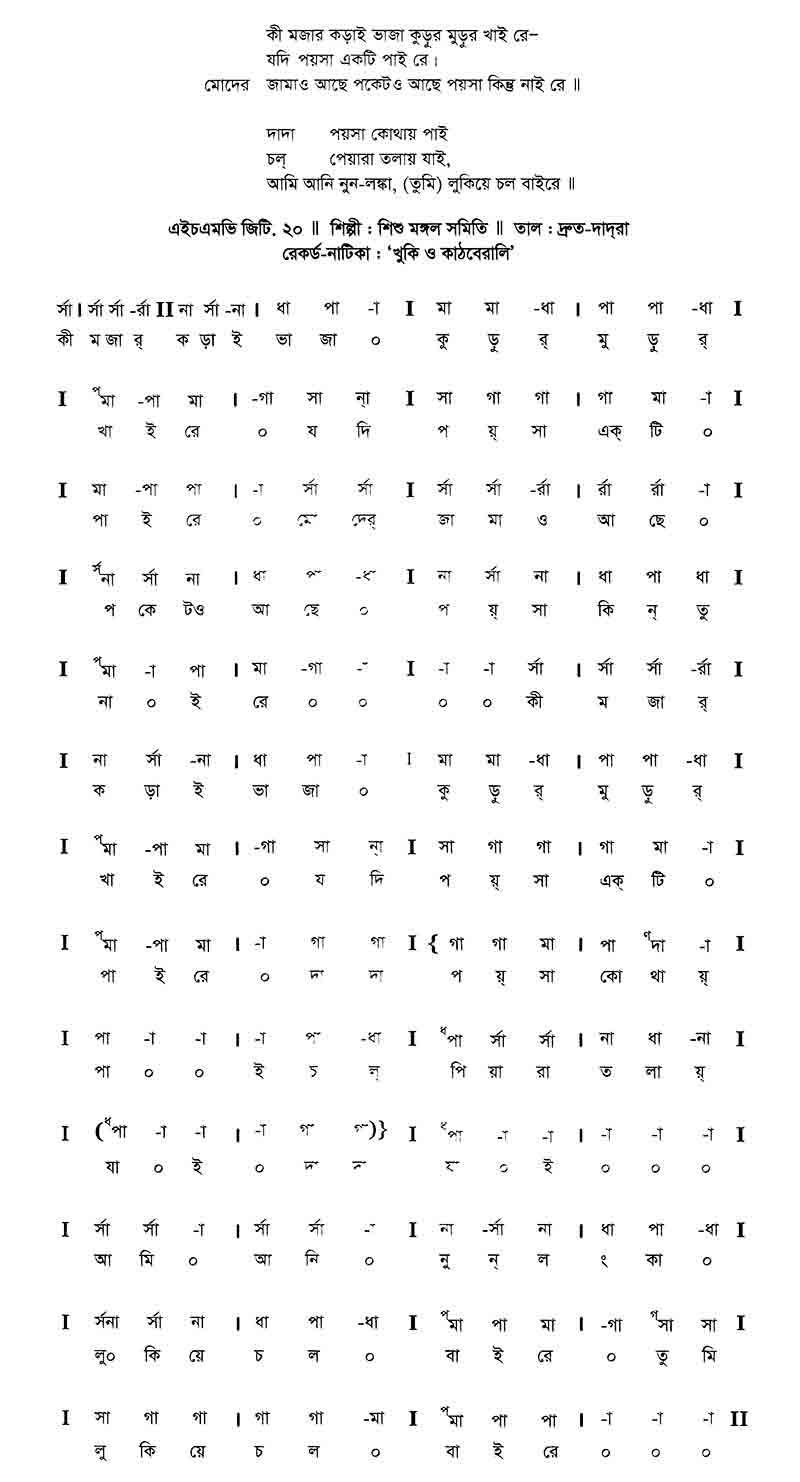 কী মজার কড়াই ভাজা কুড়ুর মুড়ুর খাই রে–
যদি পয়সা একটি পাই রে।
মোদের জামাও আছে পকেটও আছে পয়সা কিন্তু নাই রে ॥
দাদা পয়সা কোথায় পাই
চল্ পেয়ারা তলায় যাই,
আমি আনি নুন-লঙ্কা, (তুমি) লুকিয়ে চল বাইরে ॥
এইচএমভি জিটি. ২০ ॥ শিল্পী : শিশু মঙ্গল সমিতি ॥ তাল : দ্রুত-দাদ্‌রা
রেকর্ড-নাটিকা : ‘খুকি ও কাঠবেরালি’
র্সা। র্সা র্সা -র্রা II না র্সা -না । ধা পা -া I মা মা -ধা । পা পা -ধা I
কী ম জা র্ ক ড়া ই ভা জা ০ কু ড়ু র্ মু ড়ু র্
I পমা -পা মা । -গা সা ন্‌া I সা গা গা । গা মা -া I
খা ই রে ০ য দি প য়্ সা এক্ টি ০
I মা -পা পা । -া র্সা র্সা I র্সা র্সা -র্রা । র্রা র্রা -া I
পা ই রে ০ মো দের্ জা মা ও আ ছে ০
I র্সনা র্সা না । ধা পা -ধা I না র্সা না । ধা পা ধা I
প কে টও আ ছে ০ প য়্ সা কি ন্ তু
I পমা -া পা । মা -গা -া I -া -া র্সা । র্সা র্সা -র্রা I
না ০ ই রে ০ ০ ০ ০ কী ম জা র্
I না র্সা -না । ধা পা -া I মা মা -ধা । পা পা -ধা I
ক ড়া ই ভা জা ০ কু ড়ু র্ মু ড়ু র্
I পমা -পা মা । -গা সা ন্‌া I সা গা গা । গা মা -া I
খা ই রে ০ য দি প য়্ সা এক্ টি ০
I পমা -পা মা । -া গা গা I { গা গা মা । পা ণদা -া I
পা ই রে ০ দা দা প য়্ সা কো থা য়্
I পা -া -া । -া পা -ধা I ধপা র্সা র্সা । না ধা -না I
পা ০ ০ ই চ ল্ পি য়া রা ত লা য়্
I (ধপা -া -া । -া গা গা)} I ধপা -া -া । -া -া -া I
যা ০ ই ০ দা দা যা ০ ই ০ ০ ০
I র্সা র্সা -া । র্সা র্সা -া I না -র্সা না । ধা পা -ধা I
আ মি ০ আ নি ০ নু ন্ ল ং কা ০
I র্সনা র্সা না । ধা পা -ধা I পমা পা মা । -গা গসা সা I
লু০ কি য়ে চ ল ০ বা ই রে ০ তু মি
I সা গা গা । গা গা -মা I পমা পা পা । -া -া -া II
লু কি য়ে চ ল ০ বা ই রে ০ ০ ০